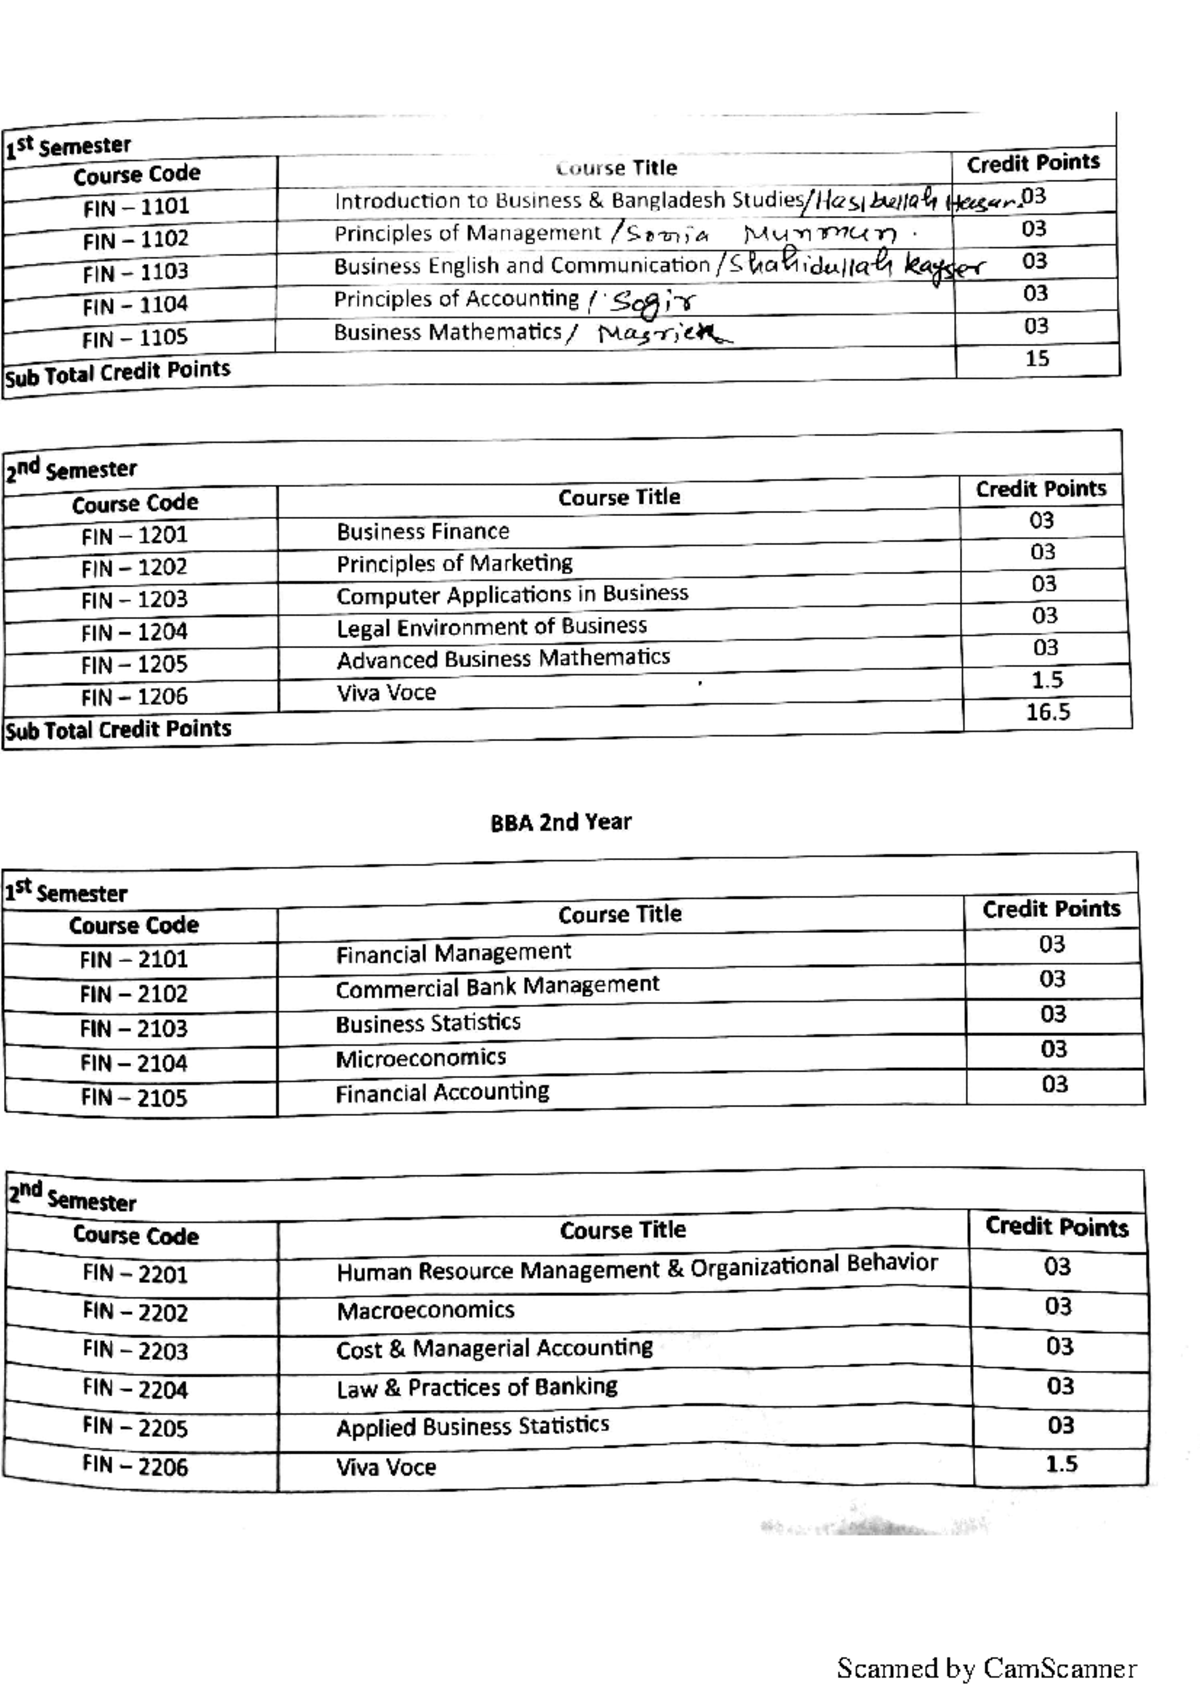 1st Semester
Course Code Course Title Credit Points
FIN – 1101 Introduction to Business & Bangladesh Studies/Hasibullah Hasan. 03
FIN – 1102 Principles of Management /Sonia Munmun. 03
FIN – 1103 Business English and Communication /Shahidullah Kayser 03
FIN – 1104 Principles of Accounting / Sogir 03
FIN – 1105 Business Mathematics / 03
Sub Total Credit Points 15
2nd Semester
Course Code Course Title Credit Points
FIN – 1201 Business Finance 03
FIN – 1202 Principles of Marketing 03
FIN – 1203 Computer Applications in Business 03
FIN – 1204 Legal Environment of Business 03
FIN – 1205 Advanced Business Mathematics 03
FIN – 1206 Viva Voce 1.5
Sub Total Credit Points 16.5
BBA 2nd Year
1st Semester
Course Code Course Title Credit Points
FIN – 2101 Financial Management 03
FIN – 2102 Commercial Bank Management 03
FIN – 2103 Business Statistics 03
FIN – 2104 Microeconomics 03
FIN – 2105 Financial Accounting 03
2nd Semester
Course Code Course Title Credit Points
FIN – 2201 Human Resource Management & Organizational Behavior 03
FIN – 2202 Macroeconomics 03
FIN – 2203 Cost & Managerial Accounting 03
FIN – 2204 Law & Practices of Banking 03
FIN – 2205 Applied Business Statistics 03
FIN – 2206 Viva Voce 1.5
Scanned by CamScanner